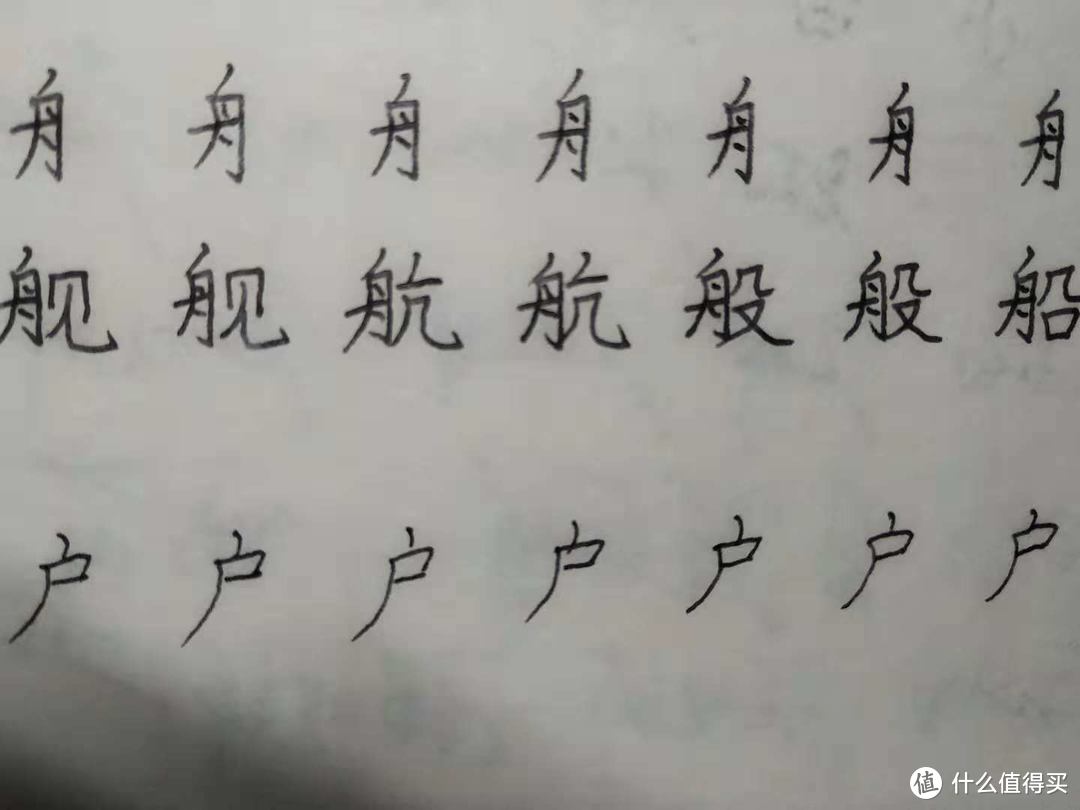 舟 舟 舟 舟 舟 舟 舟
舰 舰 航 航 般 般 船
户 户 户 户 户 户 户
值 什么值得买